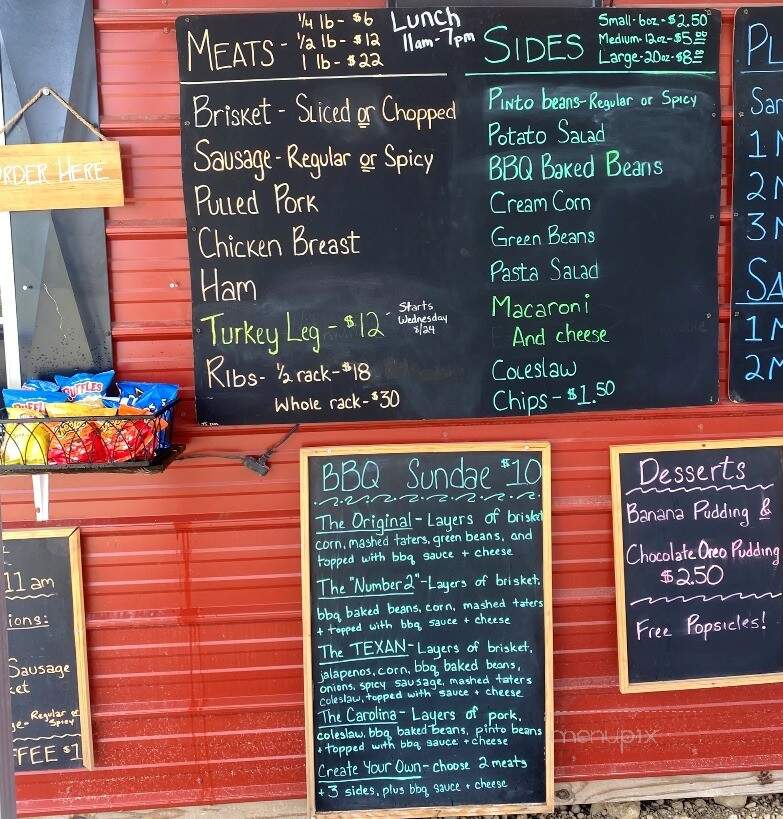 ORDER HERE
RUFFLES
MEATS - 1/4 lb - $6
1/2 lb - $12
1 lb - $22
Lunch
11am-7pm
Brisket - Sliced or Chopped
Sausage - Regular or Spicy
Pulled Pork
Chicken Breast
Ham
Turkey Leg - $12 - Starts Wednesday 8/24
Ribs - 1/2 rack - $18
Whole rack - $30
SIDES
Small - 6oz - $2.50
Medium - 12oz - $5.00
Large - 20oz - $8.00
Pinto beans - Regular or Spicy
Potato Salad
BBQ Baked Beans
Cream Corn
Green Beans
Pasta Salad
Macaroni
And cheese
Coleslaw
Chips - $1.50
PL
Sa
1 M
2 M
3 M
SA
1 M
2 M
11 am
ions:
Sausage
ket
ge - Regular or Spicy
FFEE $1
BBQ Sundae $10
The Original - Layers of brisket
corn, mashed taters, green beans, and
topped with bbq sauce + cheese
The "Number 2" - Layers of brisket,
bbq baked beans, corn, mashed taters
+ topped with bbq sauce + cheese
The TEXAN - Layers of brisket,
jalapenos, corn, bbq baked beans,
onions, spicy sausage, mashed taters
coleslaw, topped with sauce + cheese
The Carolina - Layers of pork,
coleslaw, bbq baked beans, pinto beans
+ topped with bbq sauce + cheese
Create Your Own - choose 2 meats
+ 3 sides, plus bbq sauce + cheese
Desserts
Banana Pudding &
Chocolate Oreo Pudding
$2.50
Free Popsicles!
menupix